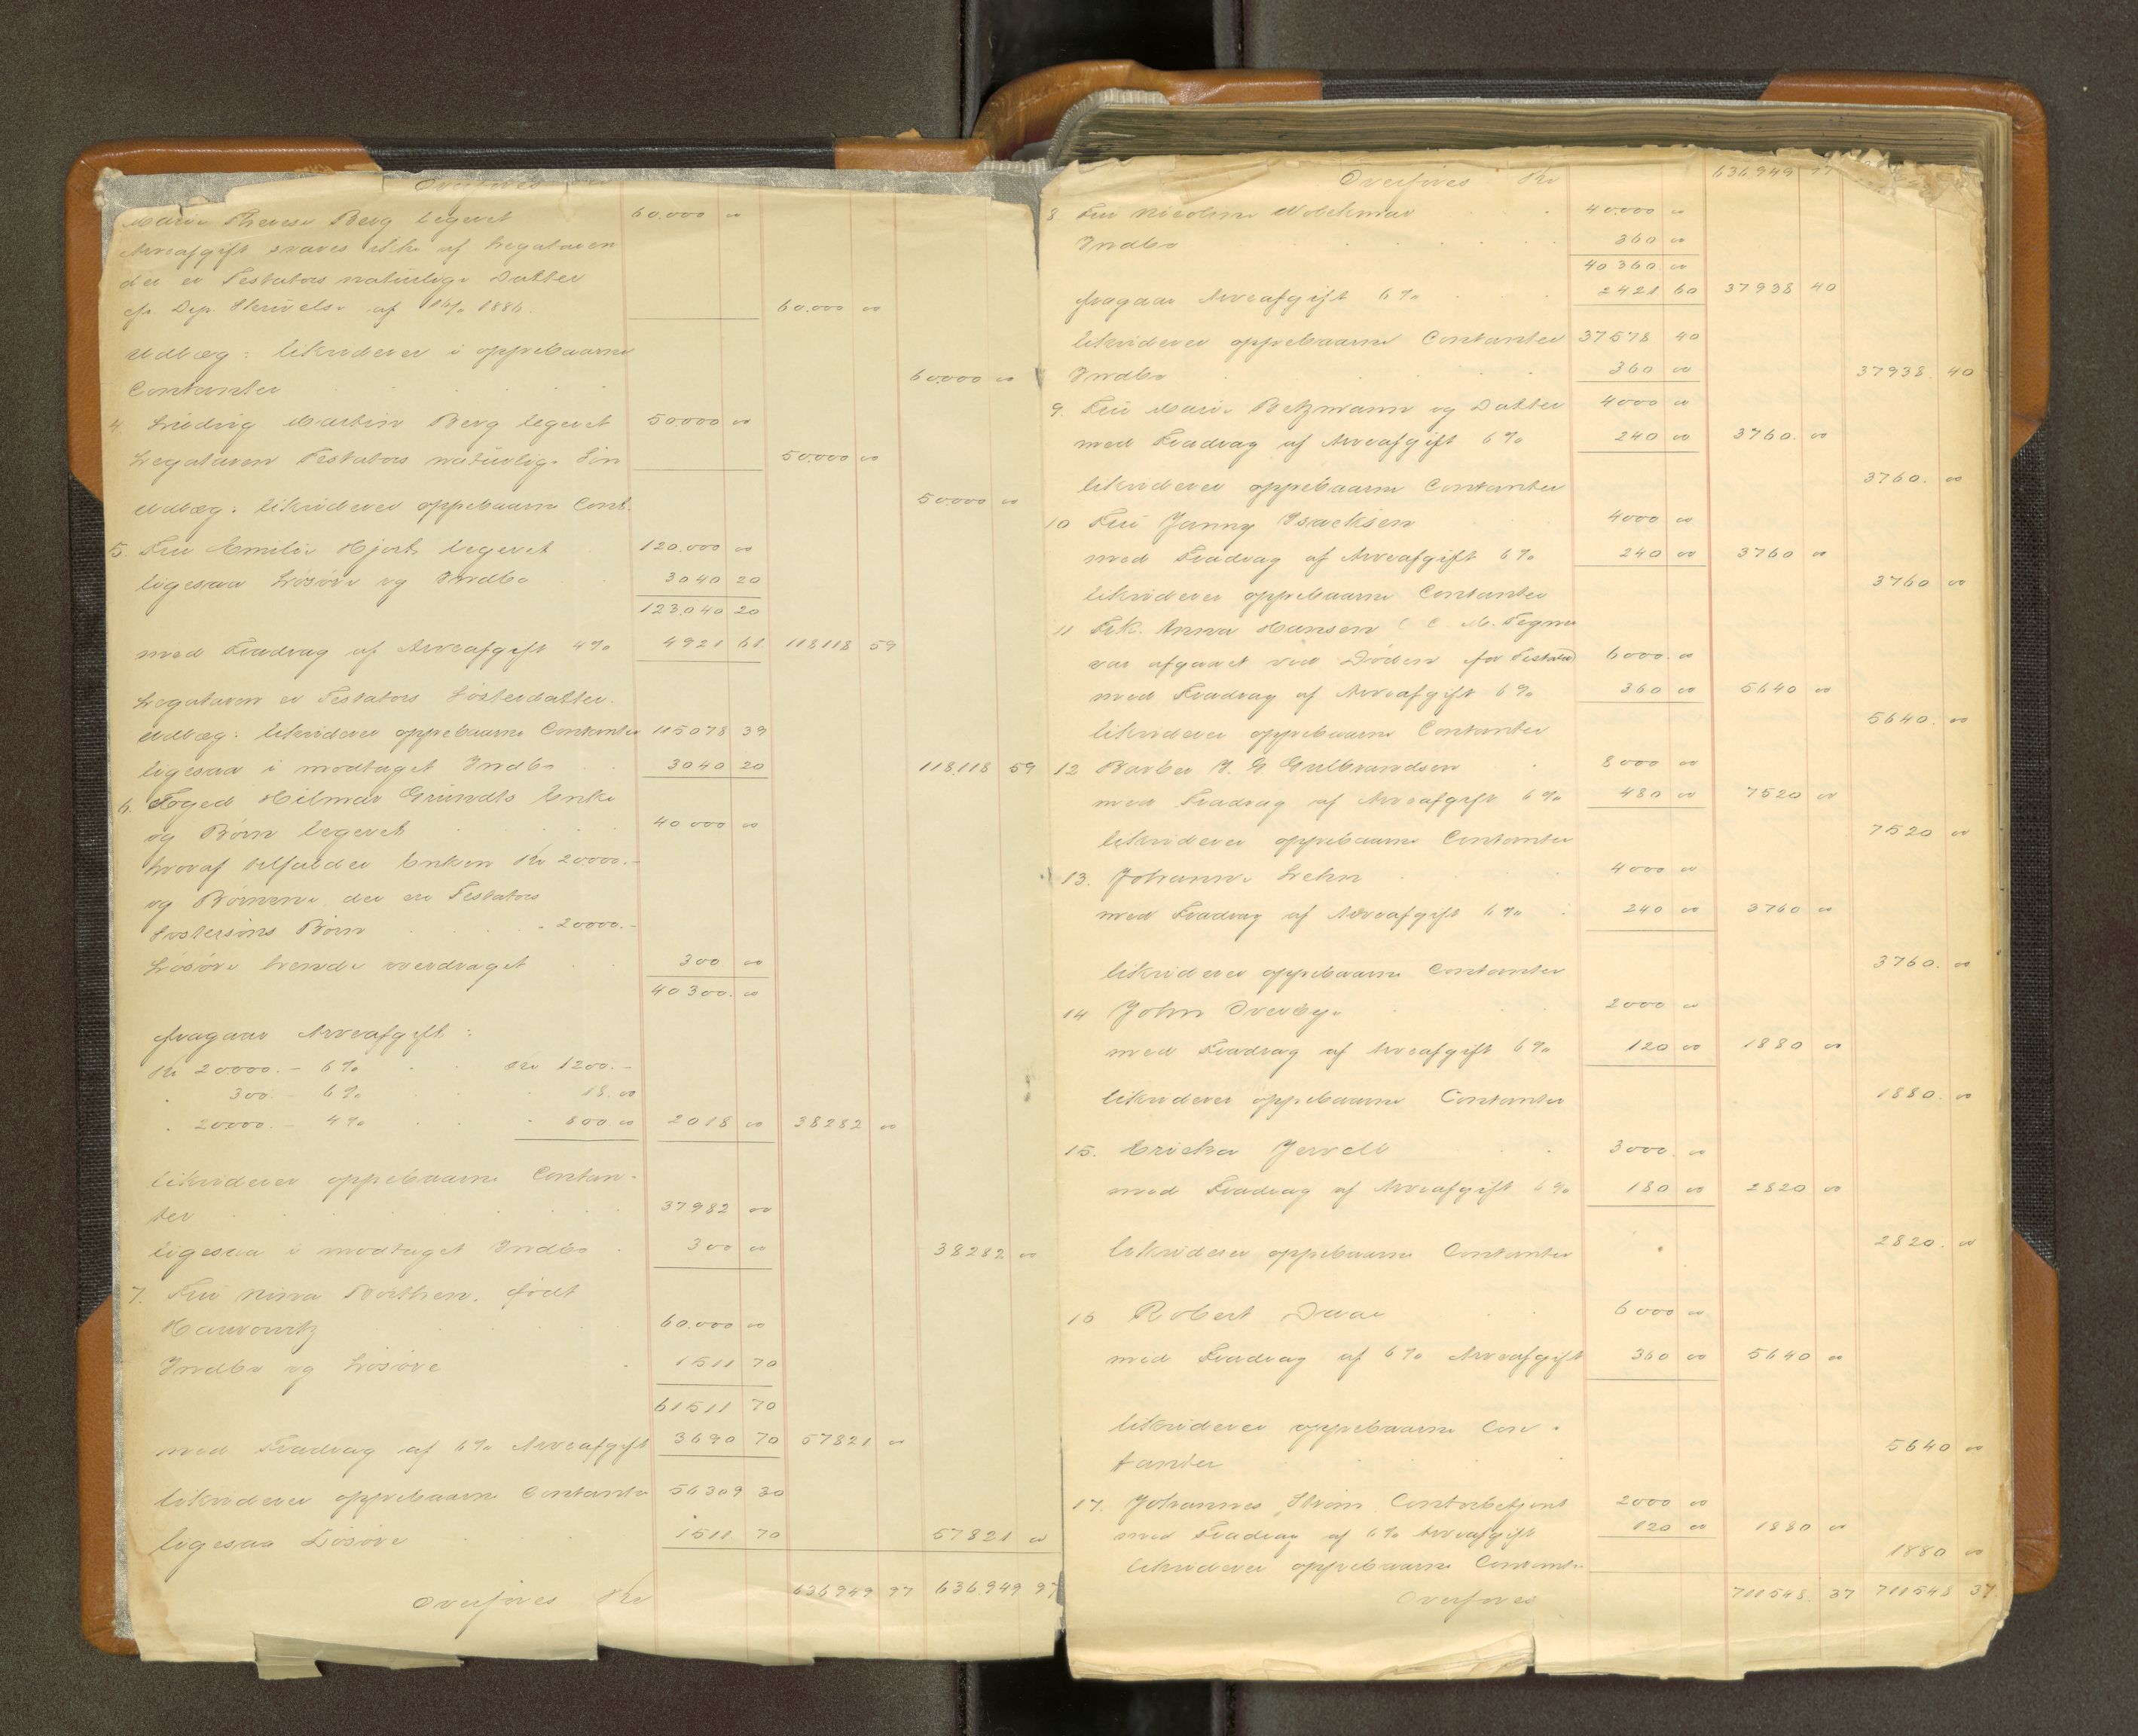 Overføres
Marie Therese Berg legeret 60.000 00
Arveafgift svares ikke af Legataren
der er Testators naturlige Datter
cfr. Dep. Skrivelse af 1886. 60.000 00
Udlæg: likviderer i oppebaarne
Contanter 60000 00
4. Ludvig Martin Berg legeret 50000 00
Legataren Testators naturlige Søn 50.000 00
Udlæg: likviderer oppebaarne Cont. 50000 00
5. Fru Emilie Hjorth legeret 120.000 00
ligesaa Løsøre og Indbo 3040 20
123.040 20
med Fradrag af Arveafgift 4% 4921 61 118118 59
Legataren er Testators Søsterdatter.
Udlæg: likviderer oppebaarne Contanter 115078 39
ligesaa i modtaget Indbo 3040 20 118,118 59
6. Foged Hilmar Grundts Enke
og Børn legeret 40 000 00
hvoraf tilfalder Enken Kr 20000.-
og Børnene, der er Testators
Søstersøns Børn 20000.-
Løsøre hende overdraget 300 00
40300. 00
fragaar Arveafgift:
Kr 20000.- 6% Kr 1200.-
" 300.- 6% 18.00
" 20000.- 4% " 800 00 2018 00 38282 00
likviderer oppebaarne Contan-
ter 37982 00
ligesaa i modtaget Indbo 300 00 38282 00
7. Fru Nina Borthen, født
60.000 00
Indbo og Løsøre 1511 70
61511 70
med Fradrag af 6% Arveafgift 3690 70 57821 00
likviderer oppebaarne Contanter 56309 30
ligesaa Løsøre 1511 70 57821 00
Overføres Kr 636949 97 636.949 97
Overføres Kr 636949 97
8 Fru Nicoline Wolckmar 40.000 00
Indbo 360 00
40360 00
fragaar Arveafgift 6% 2421 60 37938 40
likviderer oppebaarne Contanter 37578 40
Indbo 360 00 37938. 40
9. Fru Marie Betzmann og Datter 4000 00
med Fradrag af Arveafgift 6% 240 00 3760. 00
likviderer oppebaarne Contanter 3760. 00
10 Fru Janny Isacksen 4000 00
med Fradrag af Arveafgift 6% 240 00 3760 00
likviderer oppebaarne Contanter 3760 00
11 Frk. Anna Hansen
var afgaaet ved Døden før Testator 6000. 00
med Fradrag af Arveafgift 6% 360 00 5640 00
likviderer oppebaarne Contanter 5640. 00
12 Barber J. G Gulbrandsen 8000 00
med Fradrag af Arveafgift 6% 480 00 7520 00
likviderer oppebaarne Contanter 7520 00
13. Johanne Lehn 4000 00
med Fradrag af Arveafgift 6% 240 00 3760 00
likviderer oppebaarne Contanter 3760. 00
14 John Overbye 2000 00
med Fradrag af Arveafgift 6% 120 00 1880 00
likviderer oppebaarne Contanter 1880. 00
15. Ericka Jervell 3000. 00
med Fradrag af Arveafgift 6% 180 00 2820 00
likviderer oppebaarne Contanter 2820. 00
16 Robert Daae 6000 00
med Fradrag af 6% Arveafgift 360 00 5640 00
likviderer oppebaarne Con-
tanter 5640 00
17. Johannes Strøm Contorbetjent 2000 00
med Fradrag af 6% Arveafgift 120 00 1880 00
likviderer oppebaarne Contanter 1880 00
Overføres 711548. 37 711548 37.